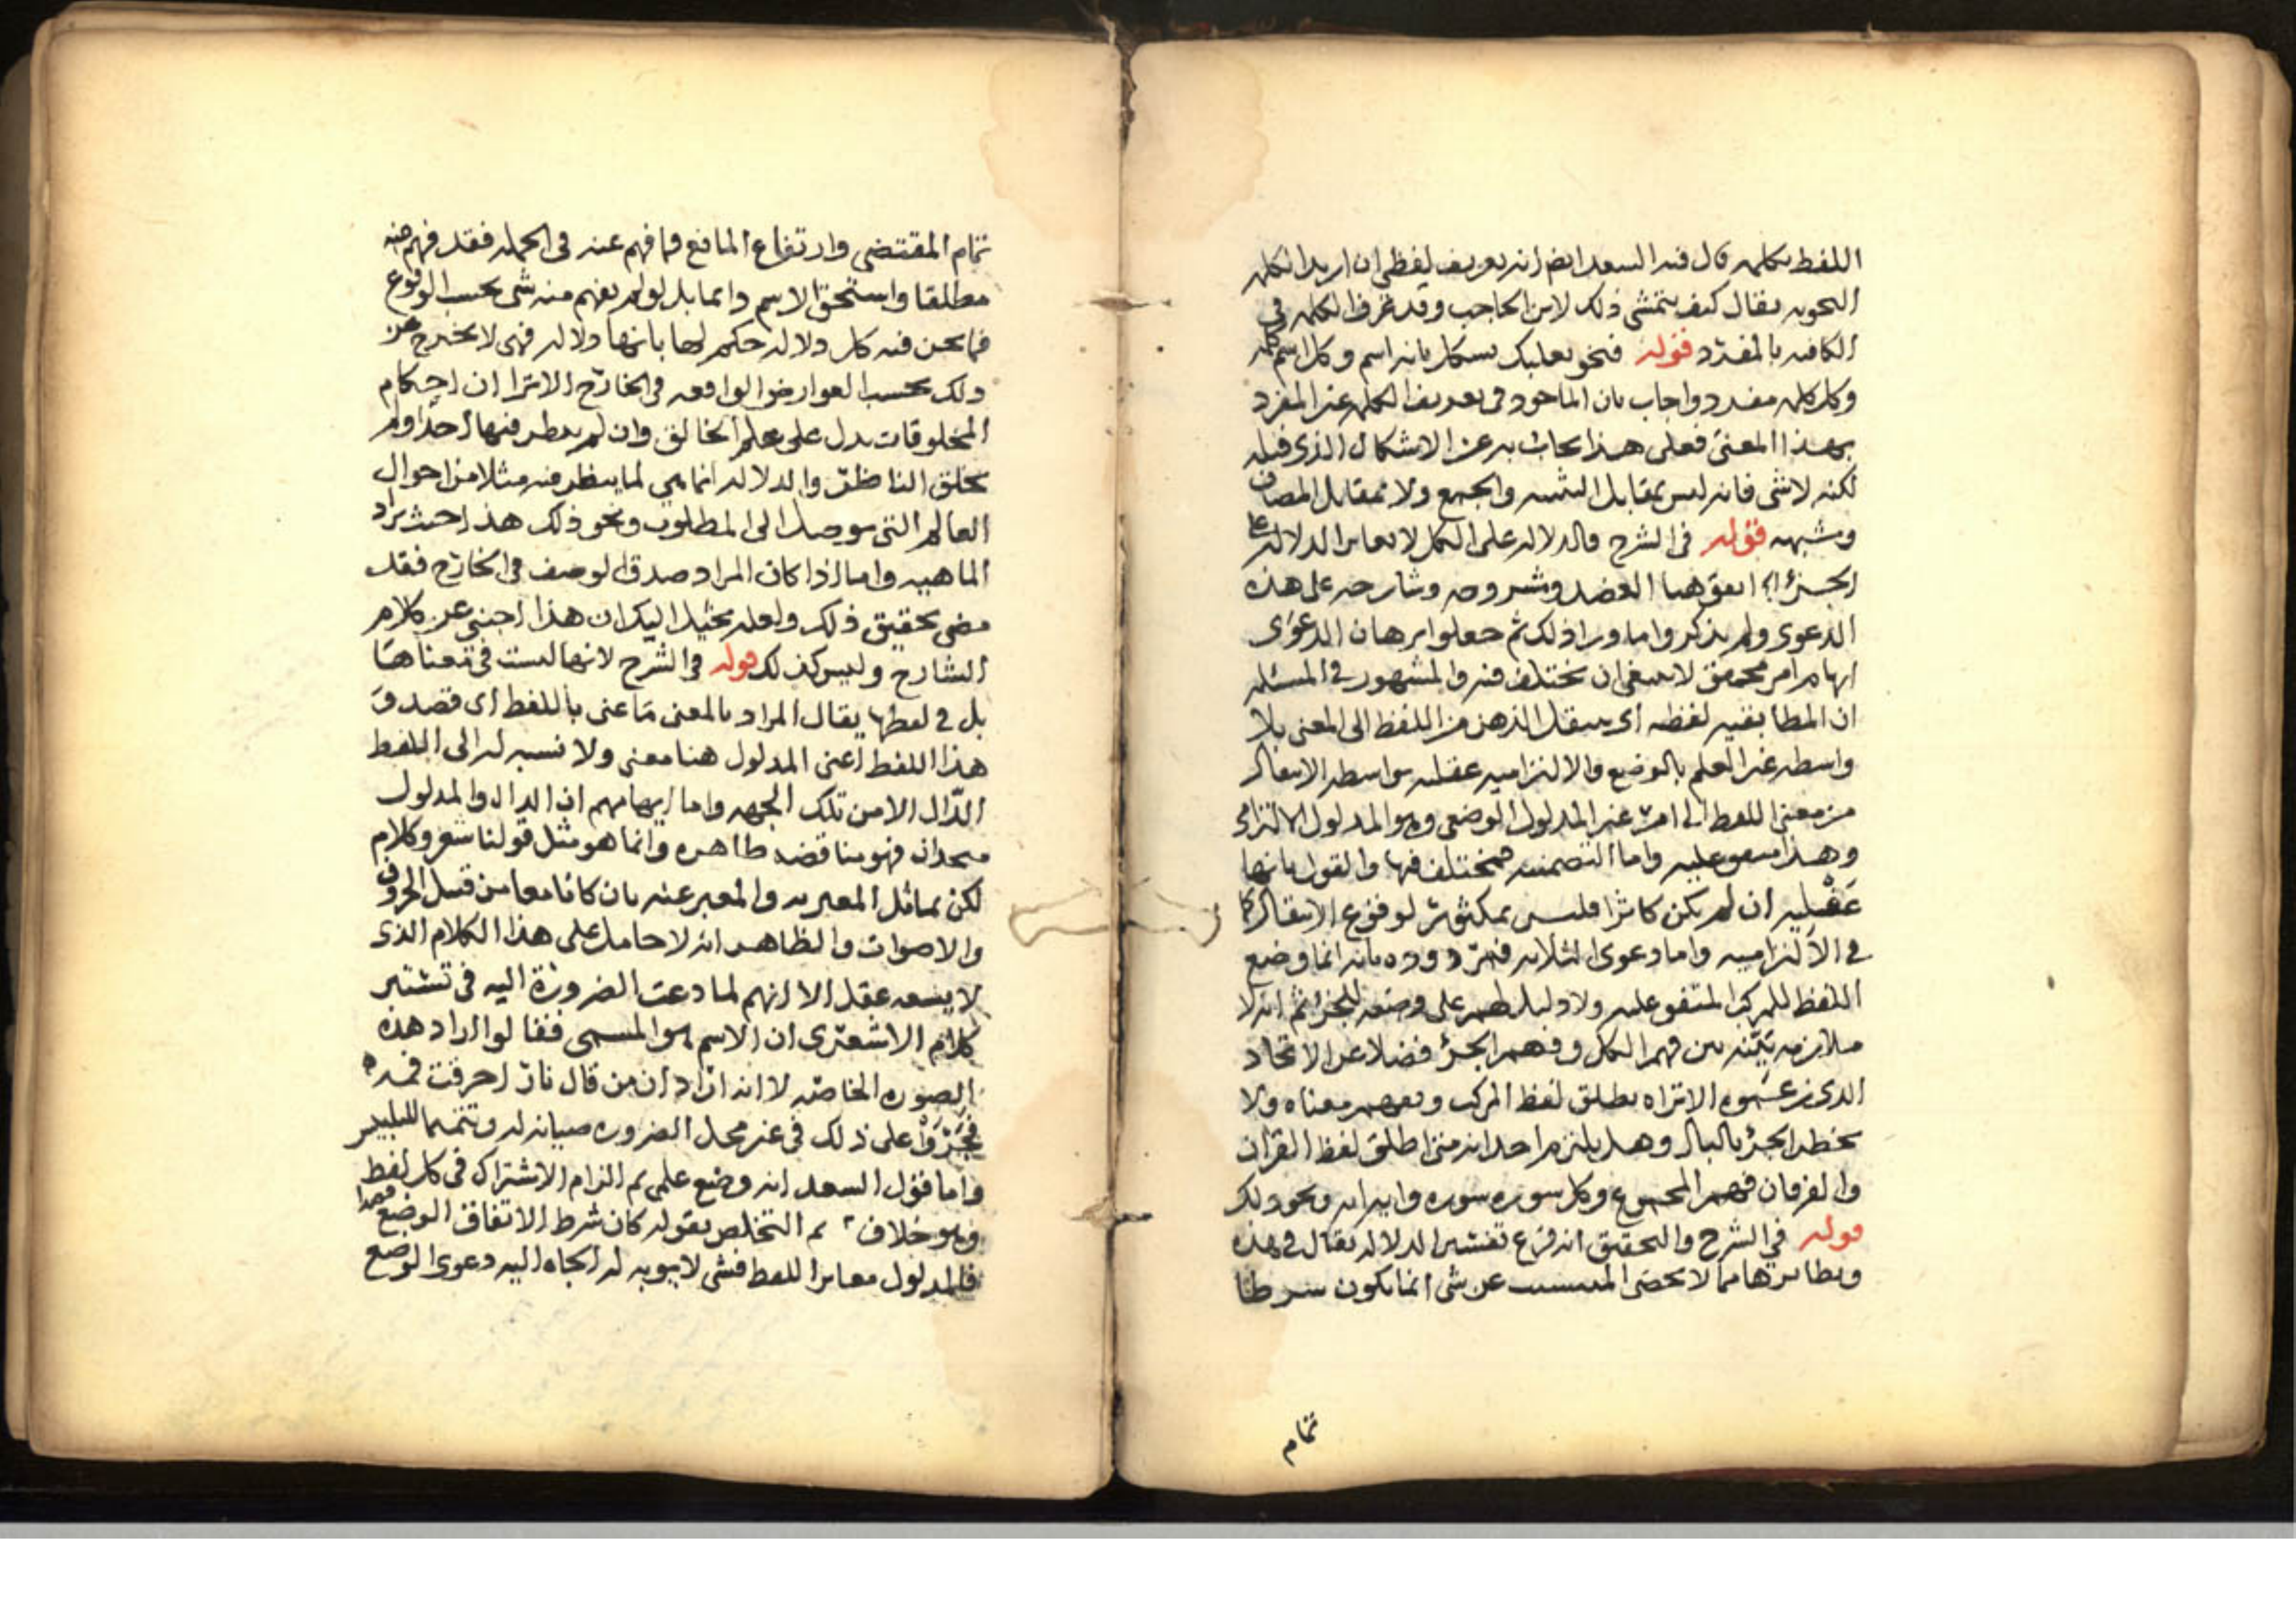 اللفظ بكلمه قال فيه السعد ايضا انه تعريف لفظي ان اريد الكلمه
النحويه يقال كيف يتمشى ذلك لابن الحاجب وقد عرف الكلمه في
الكافيه بالمفرد قوله فنحو بعلبك يشكل بانه اسم وكل اسم كلمه
وكل كلمه مفرد واجاب بان الماخوذ في تعريف الكلمه غير المفرد
بهذا المعنى فعلى هذا يجاب به عن الاشكال الذي قبله
لكنه لاشى فانه ليس بمقابل التثنيه والجمع ولا بمقابل المضاف
وشبهه قوله في الشرح فالدلاله على الكل لا تغاير الدلاله على
الجزء اتفق هنا العضد وشروحه وشارحه على هذه
الدعوى ولم يذكروا ما وراء ذلك ثم جعلوا برهان الدعوى
ايهام امر محقق لا ينبغي ان يختلف فيه والمشهور في المسئله
ان المطابقيه لفظيه اى ينتقل الذهن من اللفظ الى المعنى بلا
واسطه غير العلم بالوضع والالتزاميه عقليه بواسطه الانتقال
من معنى اللفظ الى امر غير المدلول الوضعي وهو المدلول الالتزامي
وهذا متفق عليه واما التضمنيه فمختلف فيها والقول بانها
عقليه ان لم يكن كاثرا فليس بمكثور لوقوع الانتقال كما
في الالتزاميه واما دعوى الثلاثه فمردوده بانه انما وضع
اللفظ للمركب المتفق عليه ولا دليل لهم على وضعه للجزء ثم انه لا
ملازمه بينه بين فهم الكل وفهم الجزء فضلا عن الاتحاد
الذي زعموه الا تراه يطلق لفظ المركب ويفهم معناه ولا
يخطر الجزء بالبال وهل يلتزم احد انه متى اطلق لفظ القران
والفرقان فهم المجموع وكل سوره سوره وايه ايه ونحو ذلك
قوله في الشرح والتحقيق انه فرع تفسير الدلاله يقال في هذه
ونظائرها مما لا يحصى المسبب عن شى انما يكون شرطا
تمام
تمام المقتضى وارتفاع المانع فما فهم عنه في الجمله فقد فهم منه
مطلقا واستحق الاسم دائما بل لو لم يفهم منه شى بحسب الوقوع
فما نحن فيه كل دلاله حكم لها بانها دلاله فهى لا يخرج عن
ذلك بحسب العوارض الواقعه في الخارج الا ترا ان احكام
المخلوقات يدل على علم الخالق وان لم ينظر فيها احد او لم
يخلق الناظر والدلاله انما هي لما ينظر فيه مثلا من احوال
العالم التي توصل الى المطلوب ونحو ذلك هذا حيث يراد
الماهيه واما اذا كان المراد صدق الوصف في الخارج فقد
مضى تحقيق ذلك ولعله يخيل اليك ان هذا اجنبي عن كلام
الشارح وليس كذلك قوله في الشرح لانها ليست في معناها
بل في لفظها يقال المراد بالمعنى ما عنى باللفظ اى قصد و
هذا اللفظ اعنى المدلول هنا معنى ولا نسبه له الى اللفظ
الدال الا من تلك الجهه واما ايهامهم ان الدال والمدلول
متحدان فهو مناقضه ظاهره وانما هو مثل قولنا شعر وكلام
لكن تماثل المعبر به والمعبر عنه بان كانا معا من قبيل الحروف
والاصوات والظاهر انه لا حامل على هذا الكلام الذى
لا يسعه عقل الا انهم لما دعت الضرورة اليه في تشتير
كلام الاشعرى ان الاسم هو المسمى فقالوا اراد هذه
الصوره الخاصه لا انه اراد ان من قال نار احرقت فمه
فجروا على ذلك في غير محل الضروره صيانه له وتتميما للتلبيس
واما قول السعد انه وضع علمى ثم الزام الاشتراك في كل لفظ
وهو خلاف ثم التخلص بقوله كان شرط الاتفاق الوضع قصدا
فالمدلول مغاير اللفظ فشى لا يبوبه له الجاه اليه دعوى الوضع